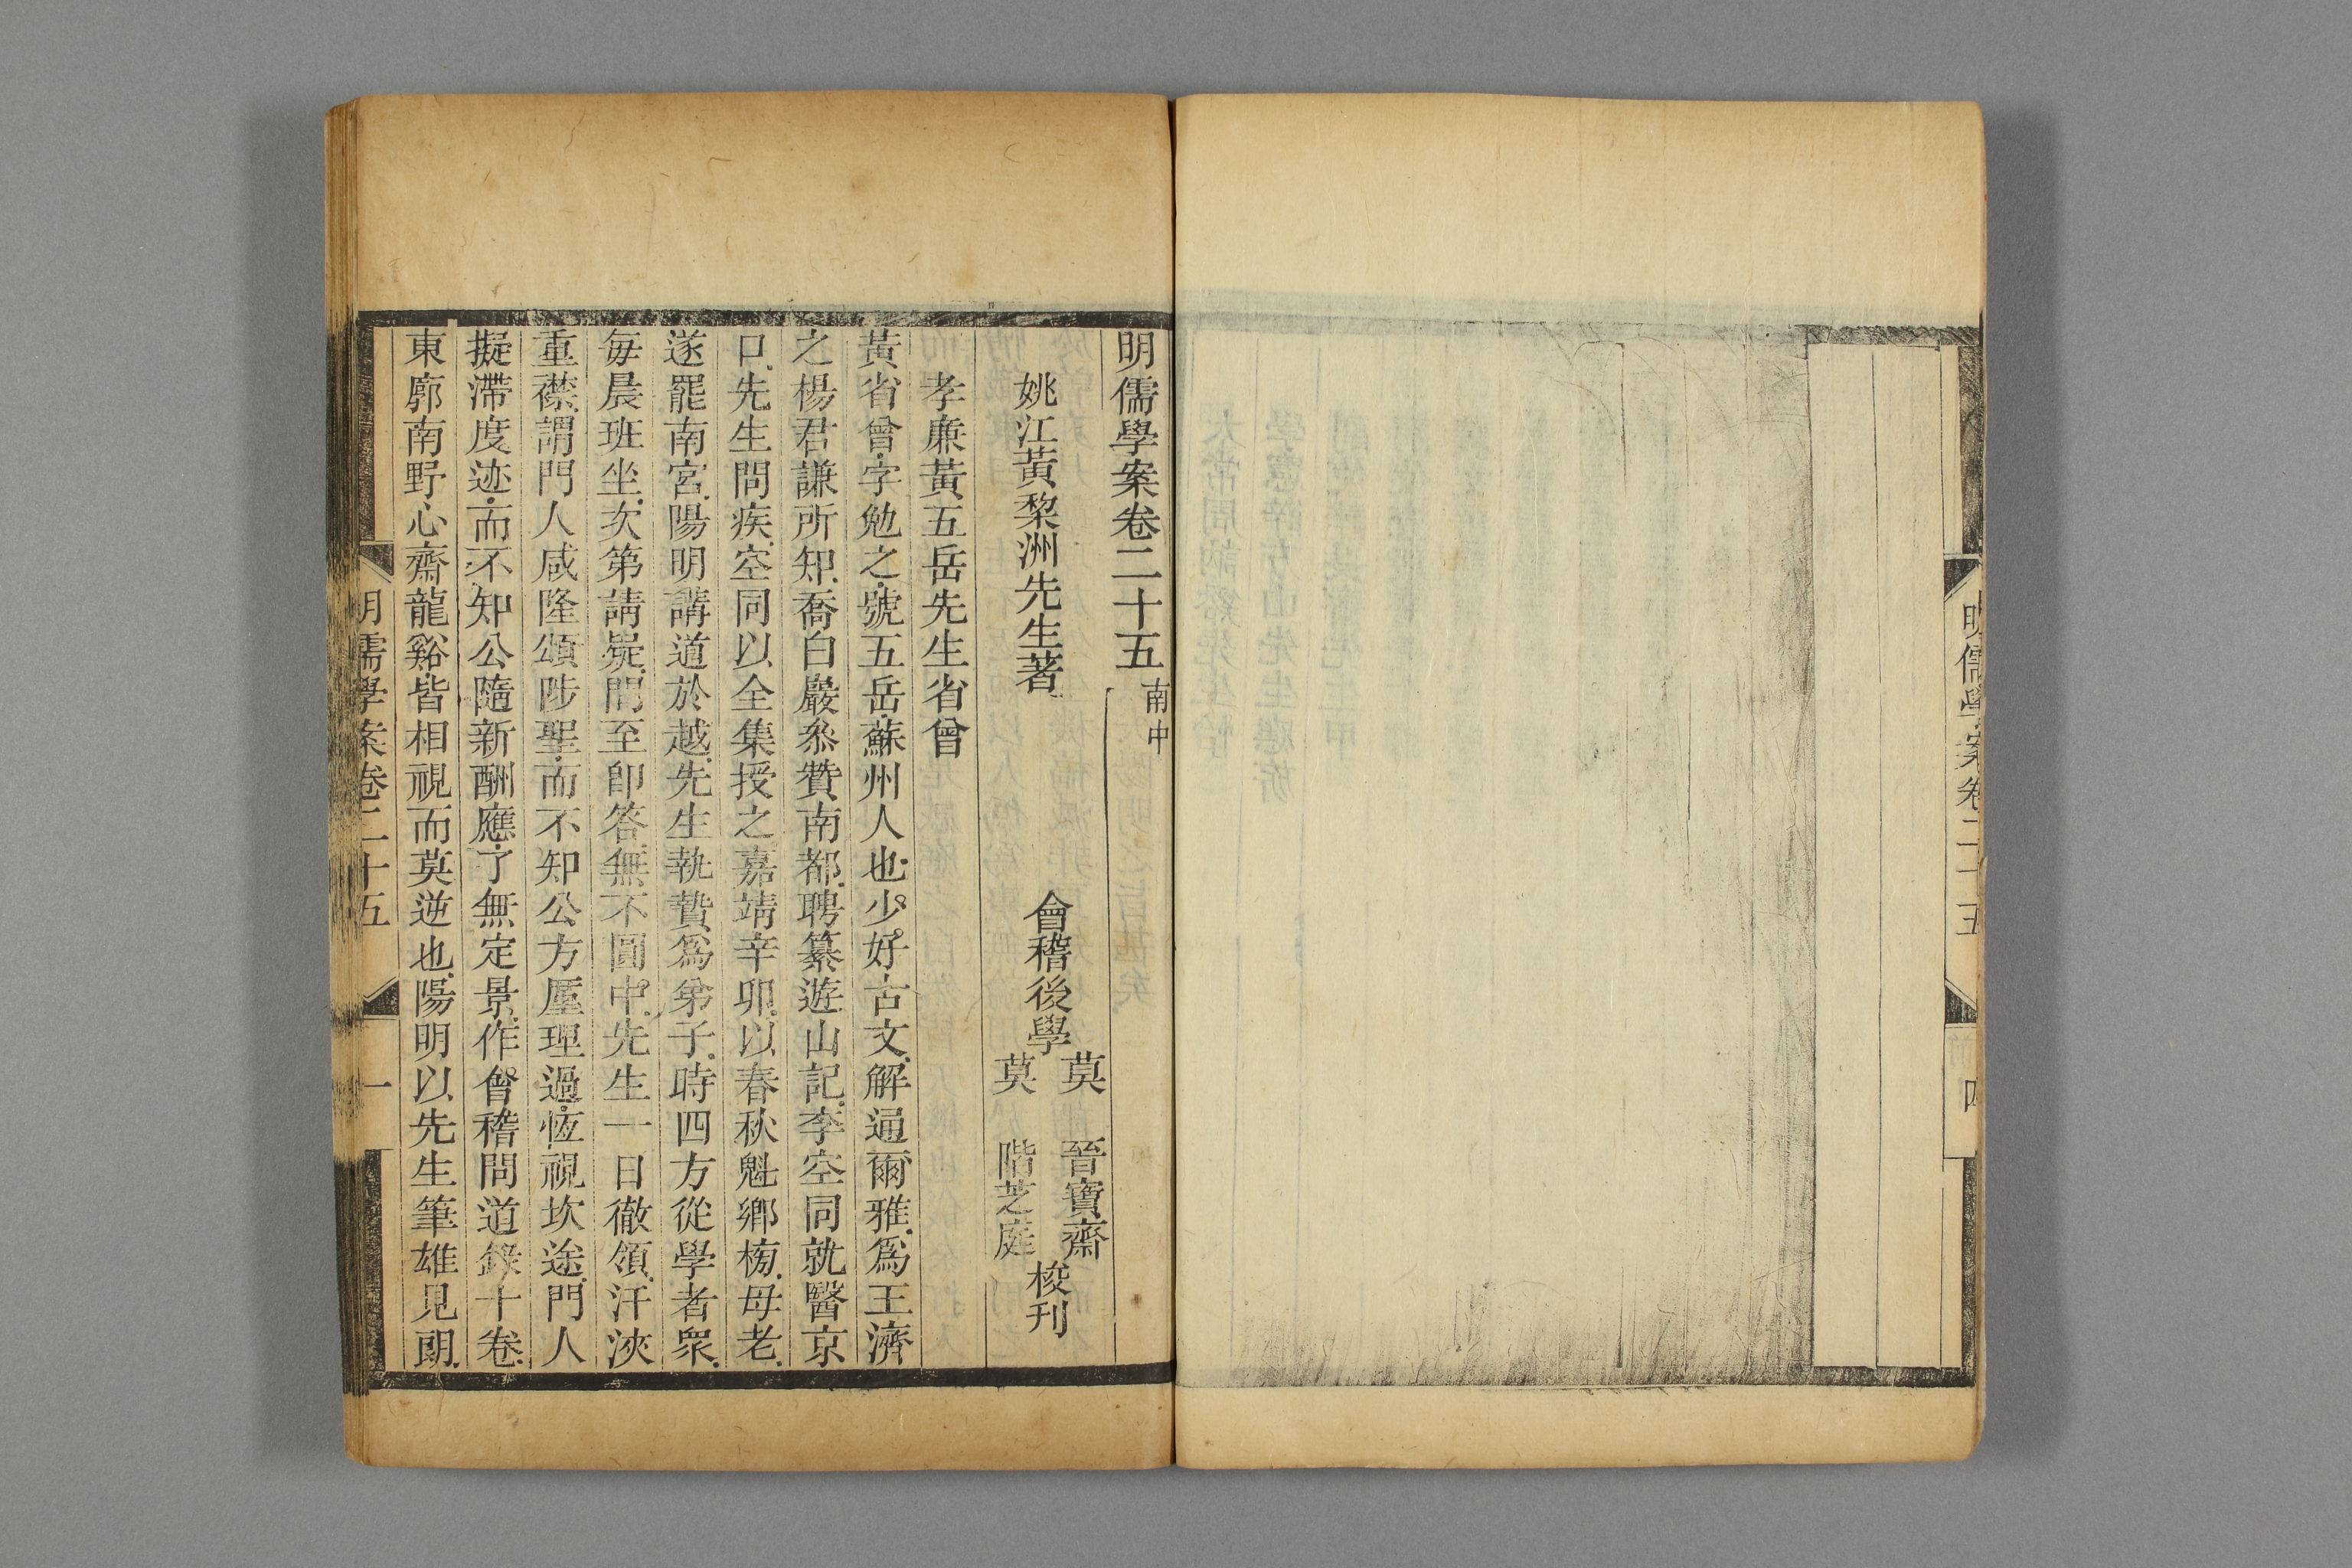 明儒學案卷二十五
四
明儒學案卷二十五 南中
姚江黃棃洲先生著
會稽後學
莫 晉寶齋
莫 階芝庭
梭刊
孝廉黃五岳先生省曾
黃省曾字勉之號五岳蘇州人也少好古文解通爾雅爲王濟
之楊君謙所知喬白巖叅贊南都聘纂遊山記李空同就醫京
口先生問疾空同以全集授之嘉靖辛卯以春秋魁鄉榜母老
遂罷南宮陽明講道於越先生執贄爲弟子時四方從學者衆
每晨班坐次第請疑問至卽答無不圓中先生一日徹領汗浹
重襟謂門人咸隆頌陟聖而不知公方厪理過恆視坎途門人
擬滯度迹而不知公隨新酬應了無定景作會稽問道錄十卷
東廓南野心齋龍谿皆相視而莫逆也陽明以先生筆雄見朗
明儒學案卷二十五
一